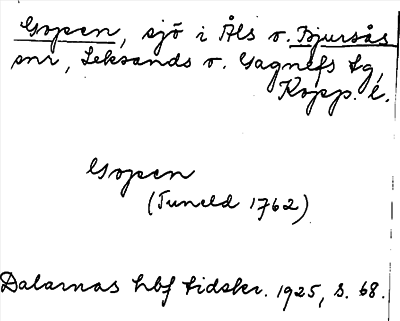 Gopen, sjö i Åls o. Bjursås
snr, Leksands o. Gagnefs tg,
Kopp. l.
Gopen
(Tuneld 1762)
Dalarnas hbf tidskr. 1925, s. 68.